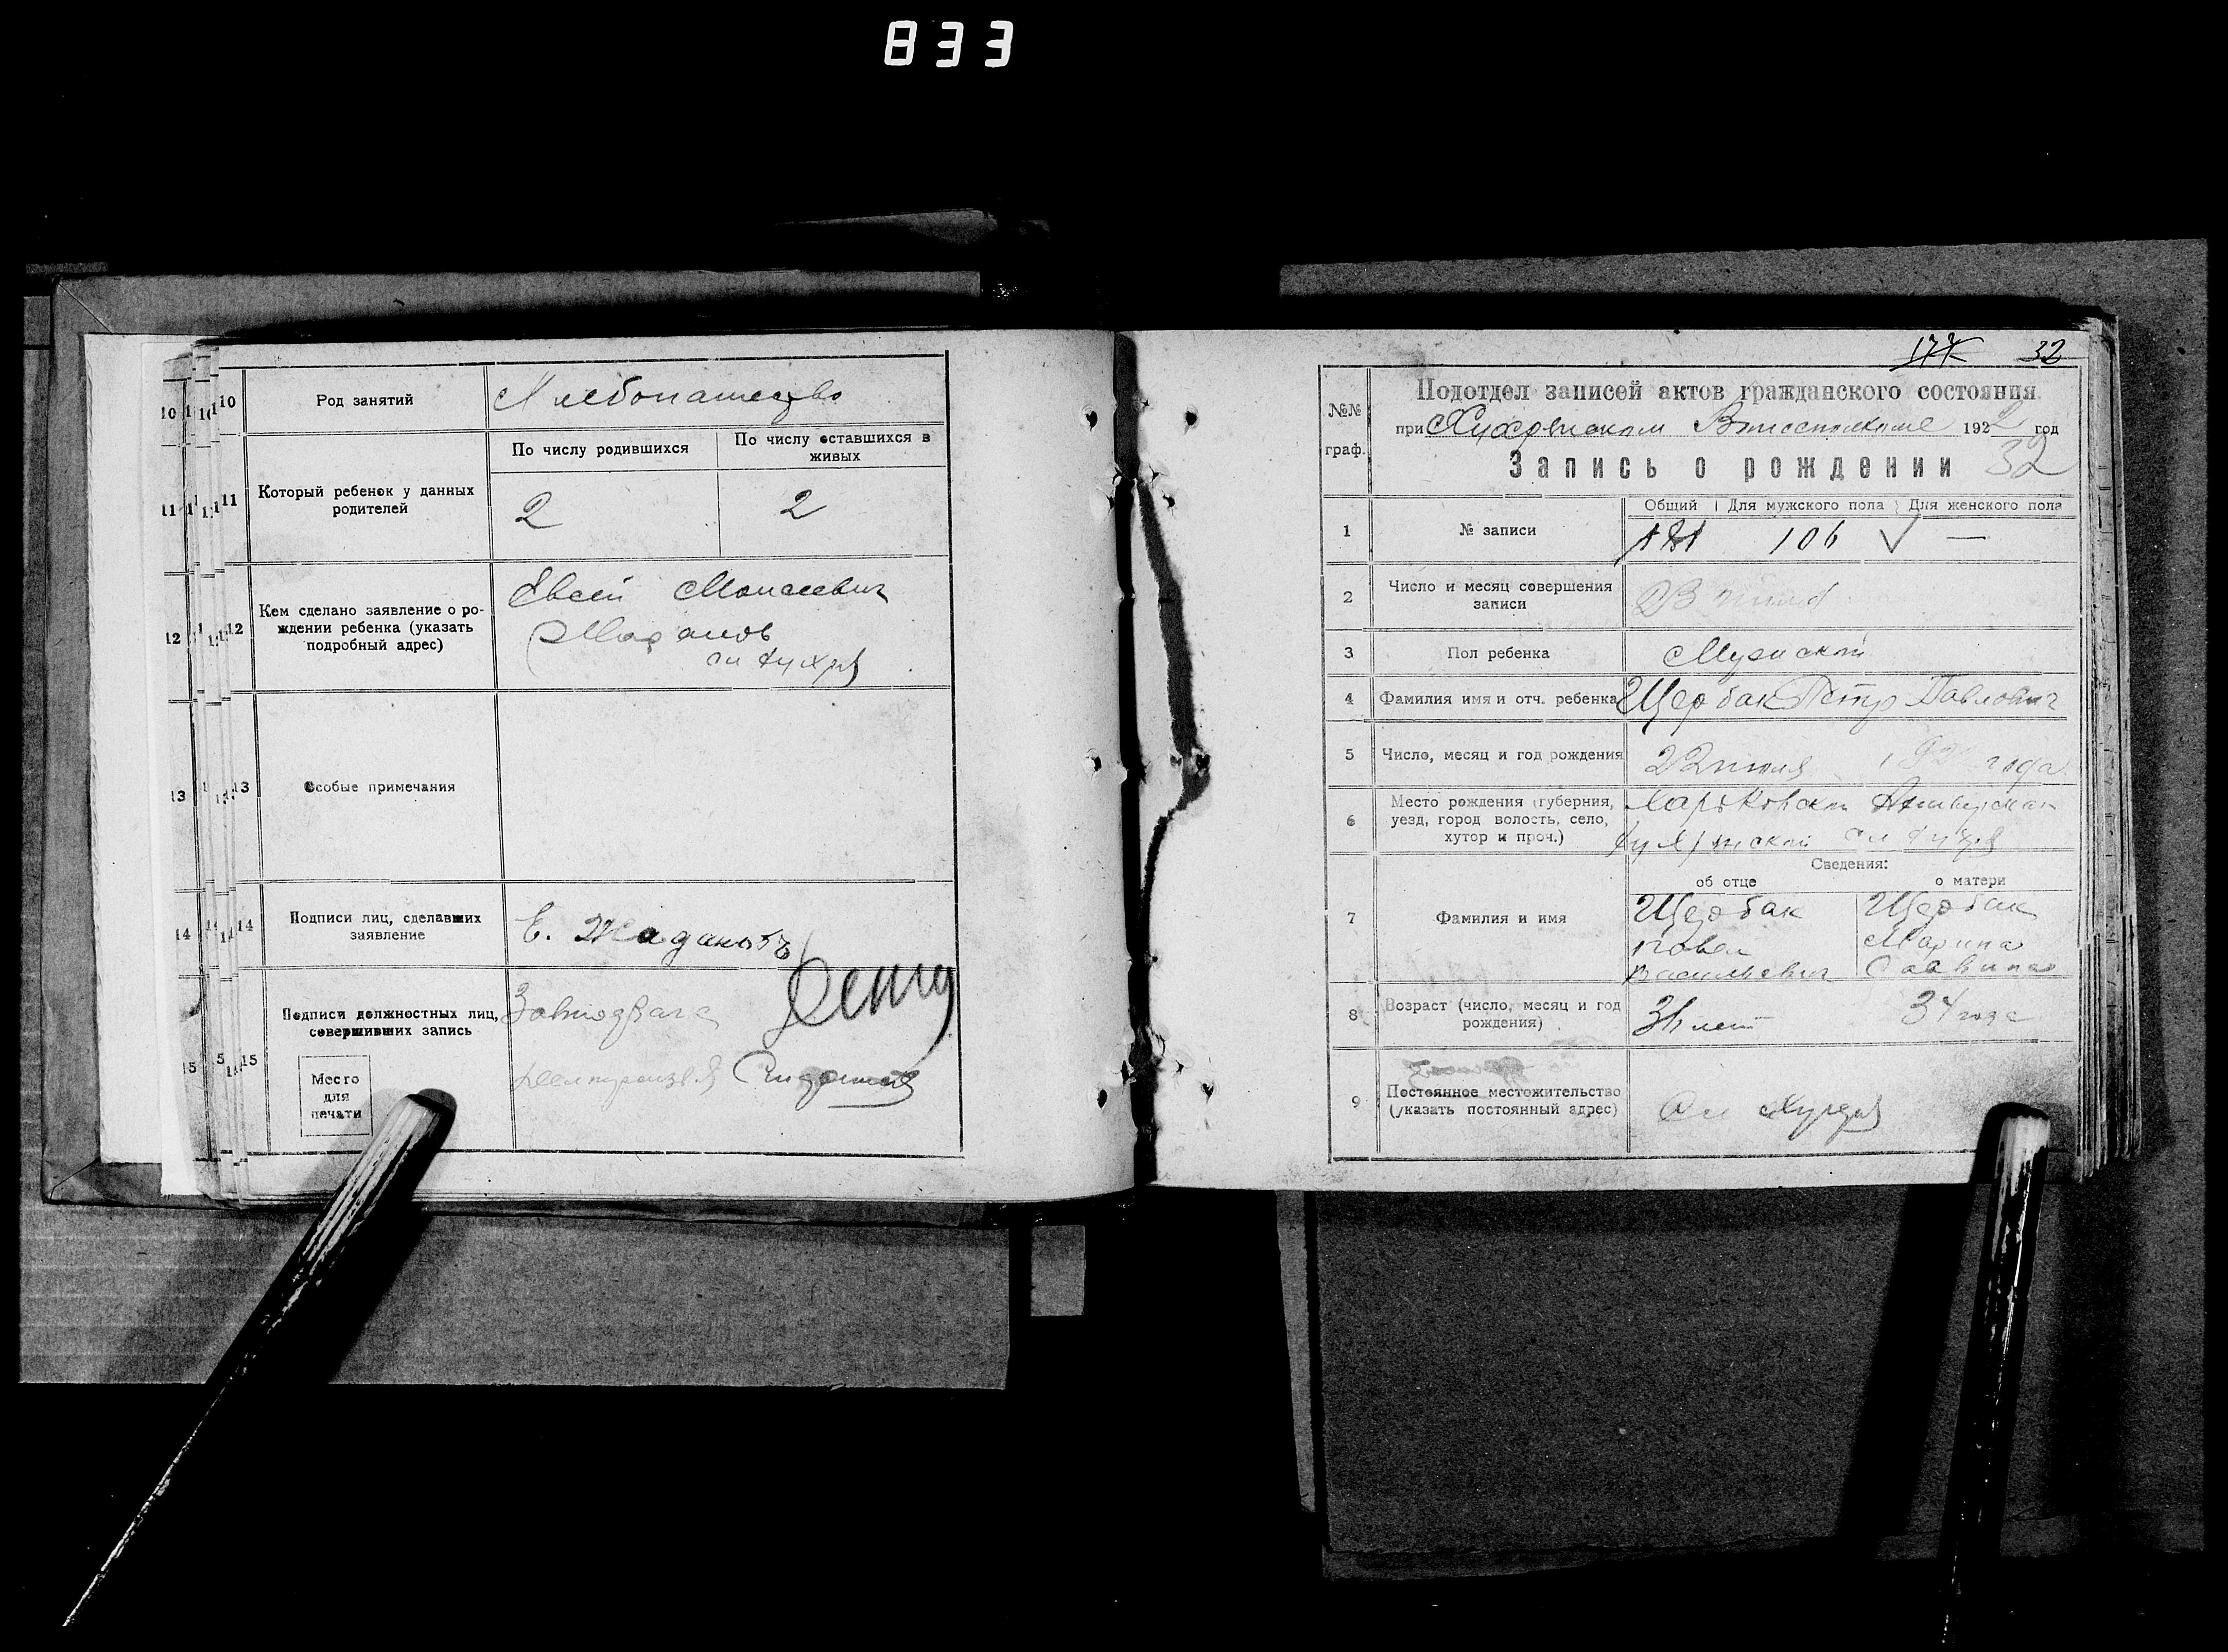 833
10 Род занятий Хлебопашество
По числу родившихся По числу оставшихся в живых
11 Который ребенок у данных родителей 2 2
12 Кем сделано заявление о ро-
ждении ребенка (указать
подробный адрес)
Евсей Моисеевич
Жаданов
сл Кухря
13 Особые примечания
14 Подписи лиц, сделавших
заявление
Е. Жадановъ
15 Подписи должностных лиц,
совершивших запись
Место
для
печати
177 32
№№
граф.
Подотдел записей актов гражданского состояния
при 1922 год
Запись о рождении 32
Общий Для мужского пола Для женского пола
1 № записи 181 106 —
2 Число и месяц совершения
записи
23
3 Пол ребенка Мужской
4 Фамилия имя и отч. ребенка Щербак Петр Павлович
5 Число, месяц и год рождения 22 июля 192 года
6 Место рождения (губерния,
уезд, город волость, село,
хутор и проч.)
Харьковской
Сведения:
об отце о матери
7 Фамилия и имя
Щербак Щербак
Павел Марина
Васильевич Саввина
8 Возраст (число, месяц и год
рождения)
36 лет 34 года
9 Постоянное местожительство
(указать постоянный адрес)
Сл